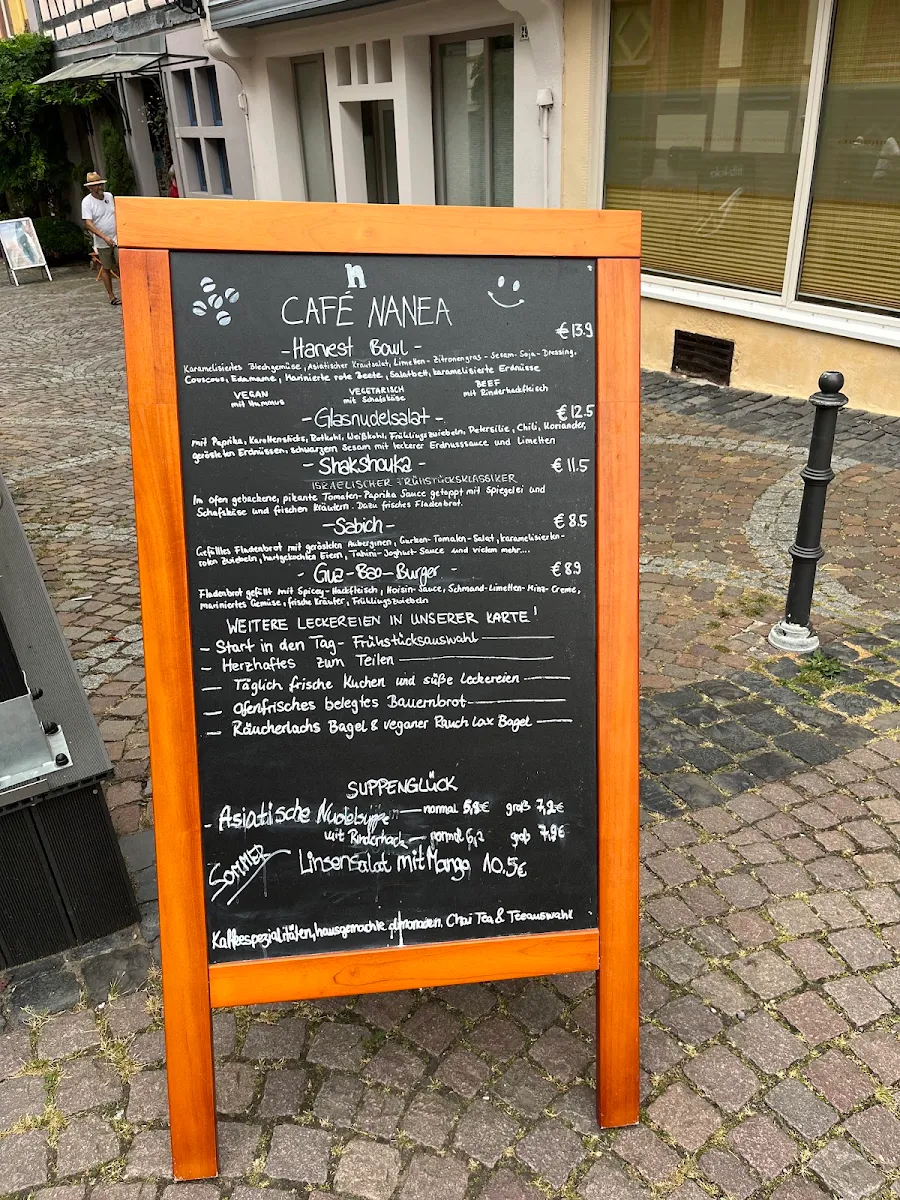 n
CAFÉ NANEA
€13.9
-Harvest Bowl-
Karamelisiertes Blechgemüse, Asiatischer Krautsalat, Limetten-Zitronengras-Sesam-Soja-Dressing,
Couscous, Edamame, Marinierte rote Beete, Salatbett, karamelisierte Erdnüsse
VEGAN VEGETARISCH BEEF
mit Hummus mit Schafskäse mit Rinderhackfleisch
-Glasnudelsalat- €12.5
mit Paprika, Karottensticks, Rotkohl, Weißkohl, Frühlingszwiebeln, Petersilie, Chili, Koriander,
gerösteten Erdnüssen, schwarzem Sesam mit leckerer Erdnusssauce und Limetten
-Shakshouka- €11.5
ISRAELISCHER FRÜHSTÜCKSKLASSIKER
Im Ofen gebackene, pikante Tomaten-Paprika Sauce getoppt mit Spiegelei und
Schafskäse und frischen Kräutern. Dazu frisches Fladenbrot.
-Sabich- €8.5
Gefülltes Fladenbrot mit gerösteten Auberginen, Gurken-Tomaten-Salat, karamelisierten-
roten Zwiebeln, hartgekochten Eiern, Tahini-Joghurt-Sauce und vielem mehr....
- Gua-Bao-Burger - €8.9
Fladenbrot gefüllt mit Spicey-Hackfleisch, Hoisin-Sauce, Schmand-Limetten-Minz-Creme,
Mariniertes Gemüse, frische Kräuter, Frühlingszwiebeln
WEITERE LECKEREIEN IN UNSERER KARTE!
- Start in den Tag- Frühstücksauswahl
- Herzhaftes zum Teilen
- Täglich frische Kuchen und süße Leckereien
- Ofenfrisches belegtes Bauernbrot
- Räucherlachs Bagel & veganer Rauch Lax Bagel
SUPPENGLÜCK
- Asiatische Nudelsuppe - normal 5,8€ groß 7,2€
mit Rinderhack - normal 6,2 groß 7,9€
SOMMER Linsensalat mit Mango 10.5€
Kaffeespezialitäten, hausgemachte Limonaden, Chai Tea & Teeauswahl